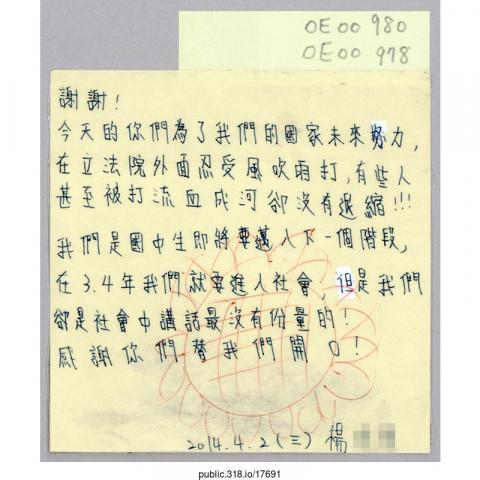 OE00 980
OE00 978
謝謝!
今天的你們為了我們的國家未來努力,
在立法院外面忍受風吹雨打,有些人
甚至被打流血成河卻沒有退縮!!!
我們是國中生即將要邁入下一個階段,
在3.4年我們就要進入社會,但是我們
卻是社會中講話最沒有份量的!
感謝你們替我們開口!
2014.4.2(三) 楊
public.318.io/17691